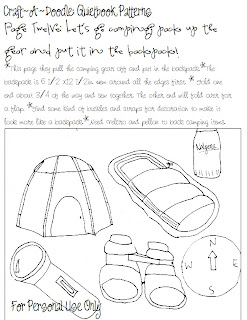 Craft~A~Doodle Quietbook Patterns
Page Twelve: Let's go camping! pack up the
gear and put it into the backpack!
*This page they pull the camping gear off and put in the backpack.*The
backpack is 6 1/2 x12 1/2in sew around all the edges first.*Fold one
end about 3/4 of the way and sew together. The other end will fold over for
a flap.*Find some kind of buckles and straps for decoration to make it
look more like a backpack*Need velcro and pellon to back camping items.
N
W
E
S
For Personal Use Only